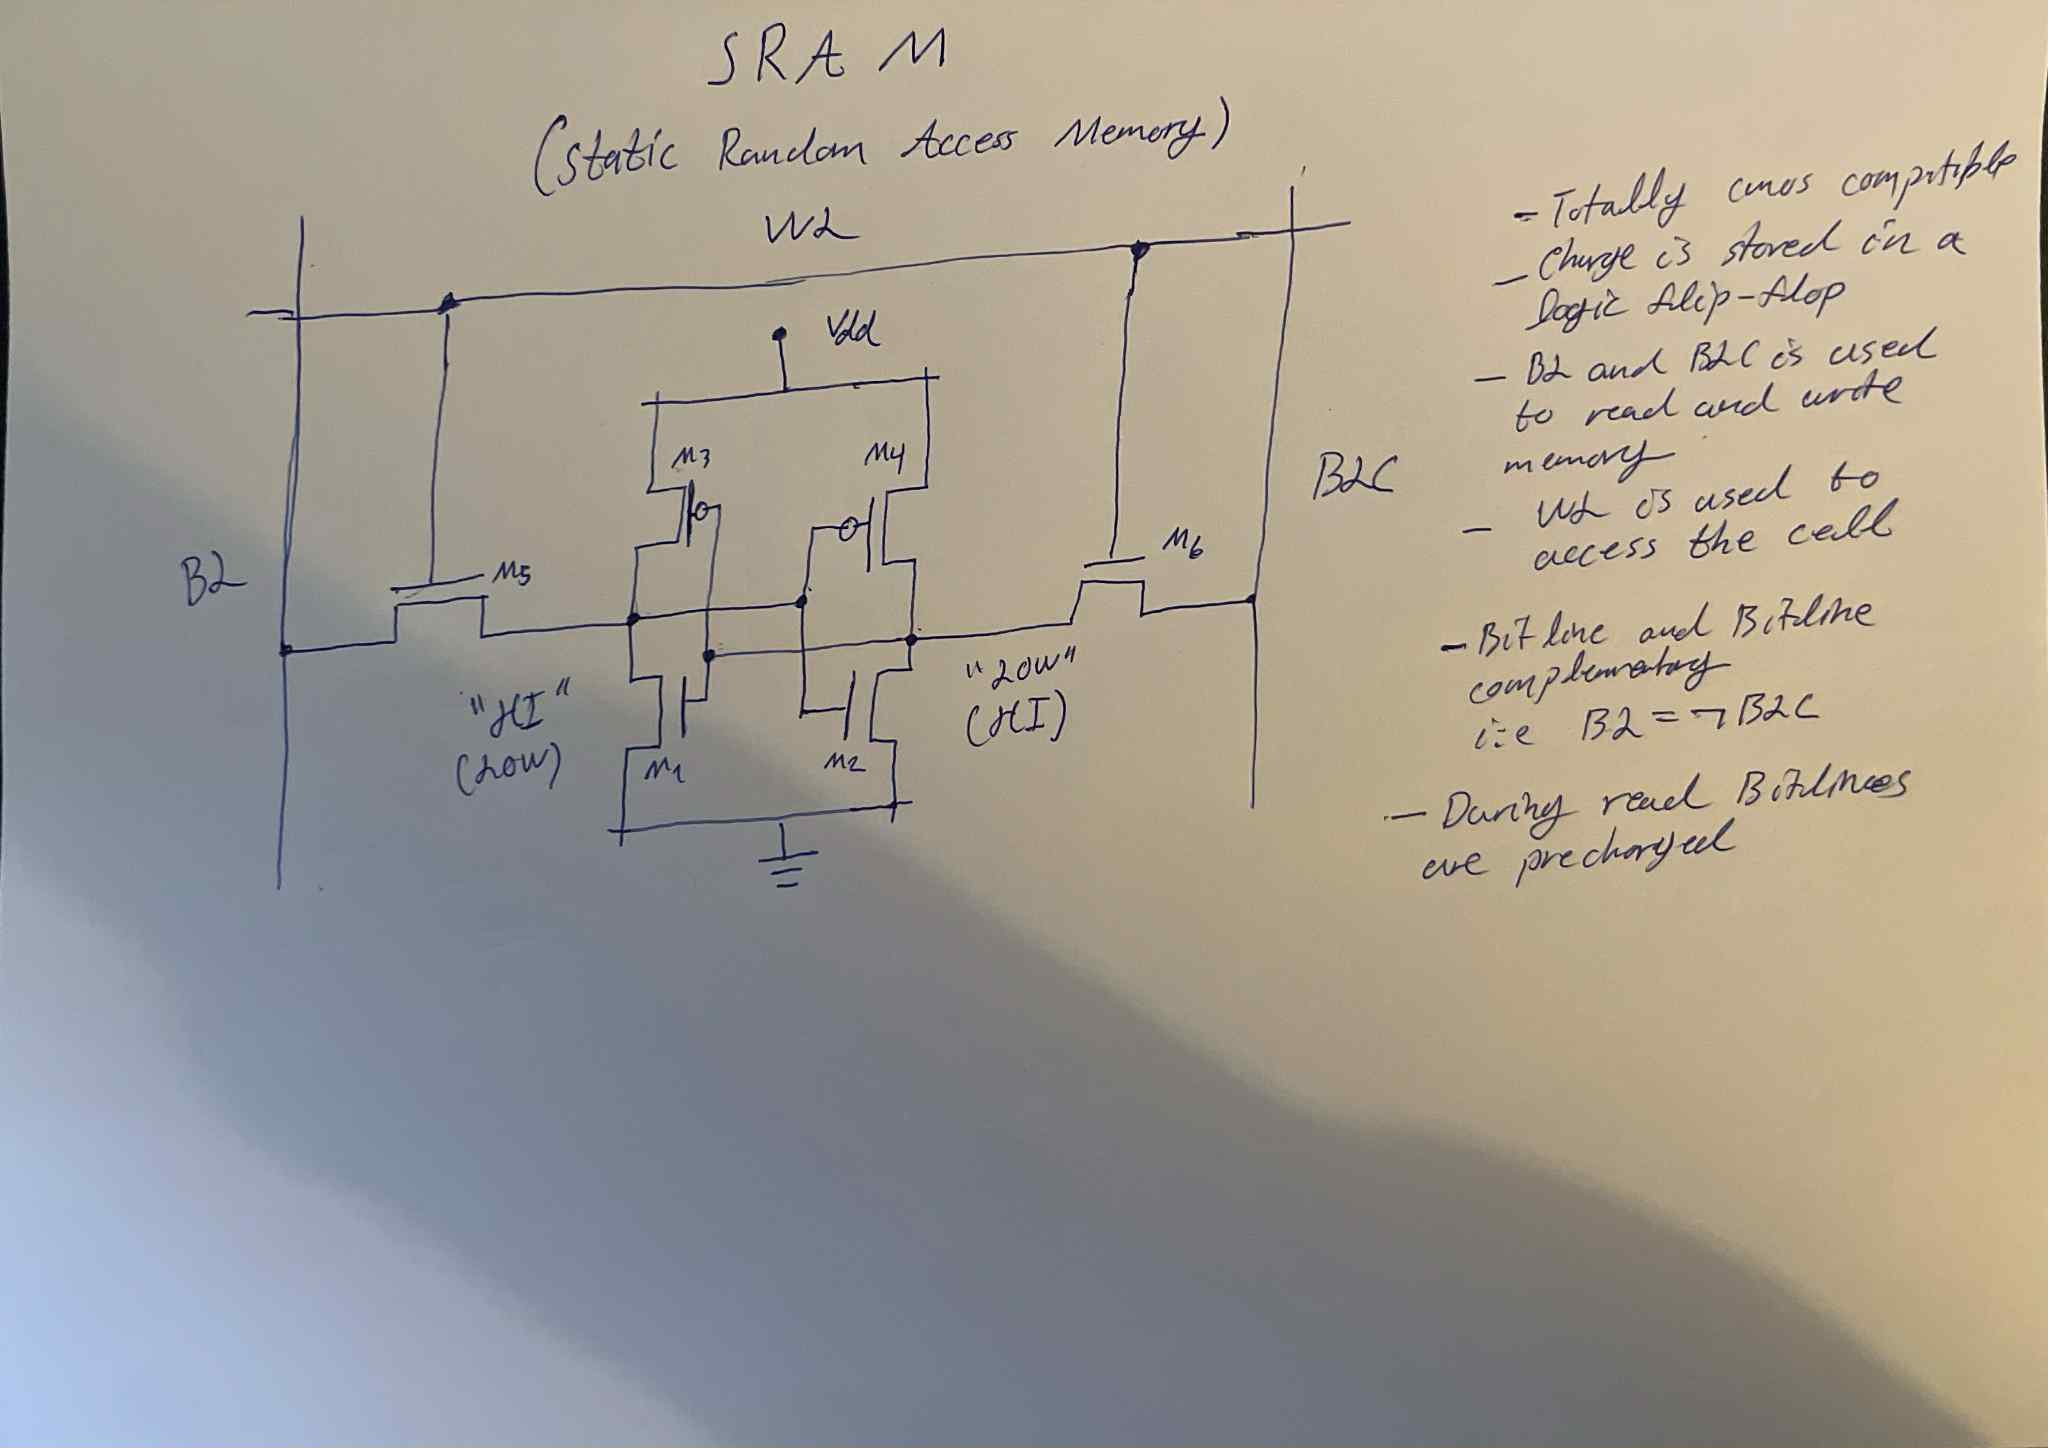 SRAM
(Static Random Access Memory)
WL
Vdd
M3
M4
BLC
BL
M5
M6
"HI"
(LOW)
"LOW"
(HI)
M1
M2
- Totally cmos compatible
- Charge is stored in a
Logic flip-flop
- BL and BLC is used
to read and write
memory
- WL is used to
access the cell
- Bit line and Bitline
complementary
i.e BL = ¬ BLC
- During read Bitlines
are precharged